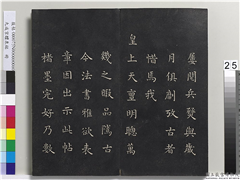 屢閱兵燹與歲
月俱創攷古者
惜焉我
皇上天亶明聰萬
幾之暇品隲古
今法書雅欲表
章因出示此帖
楮墨完好乃數